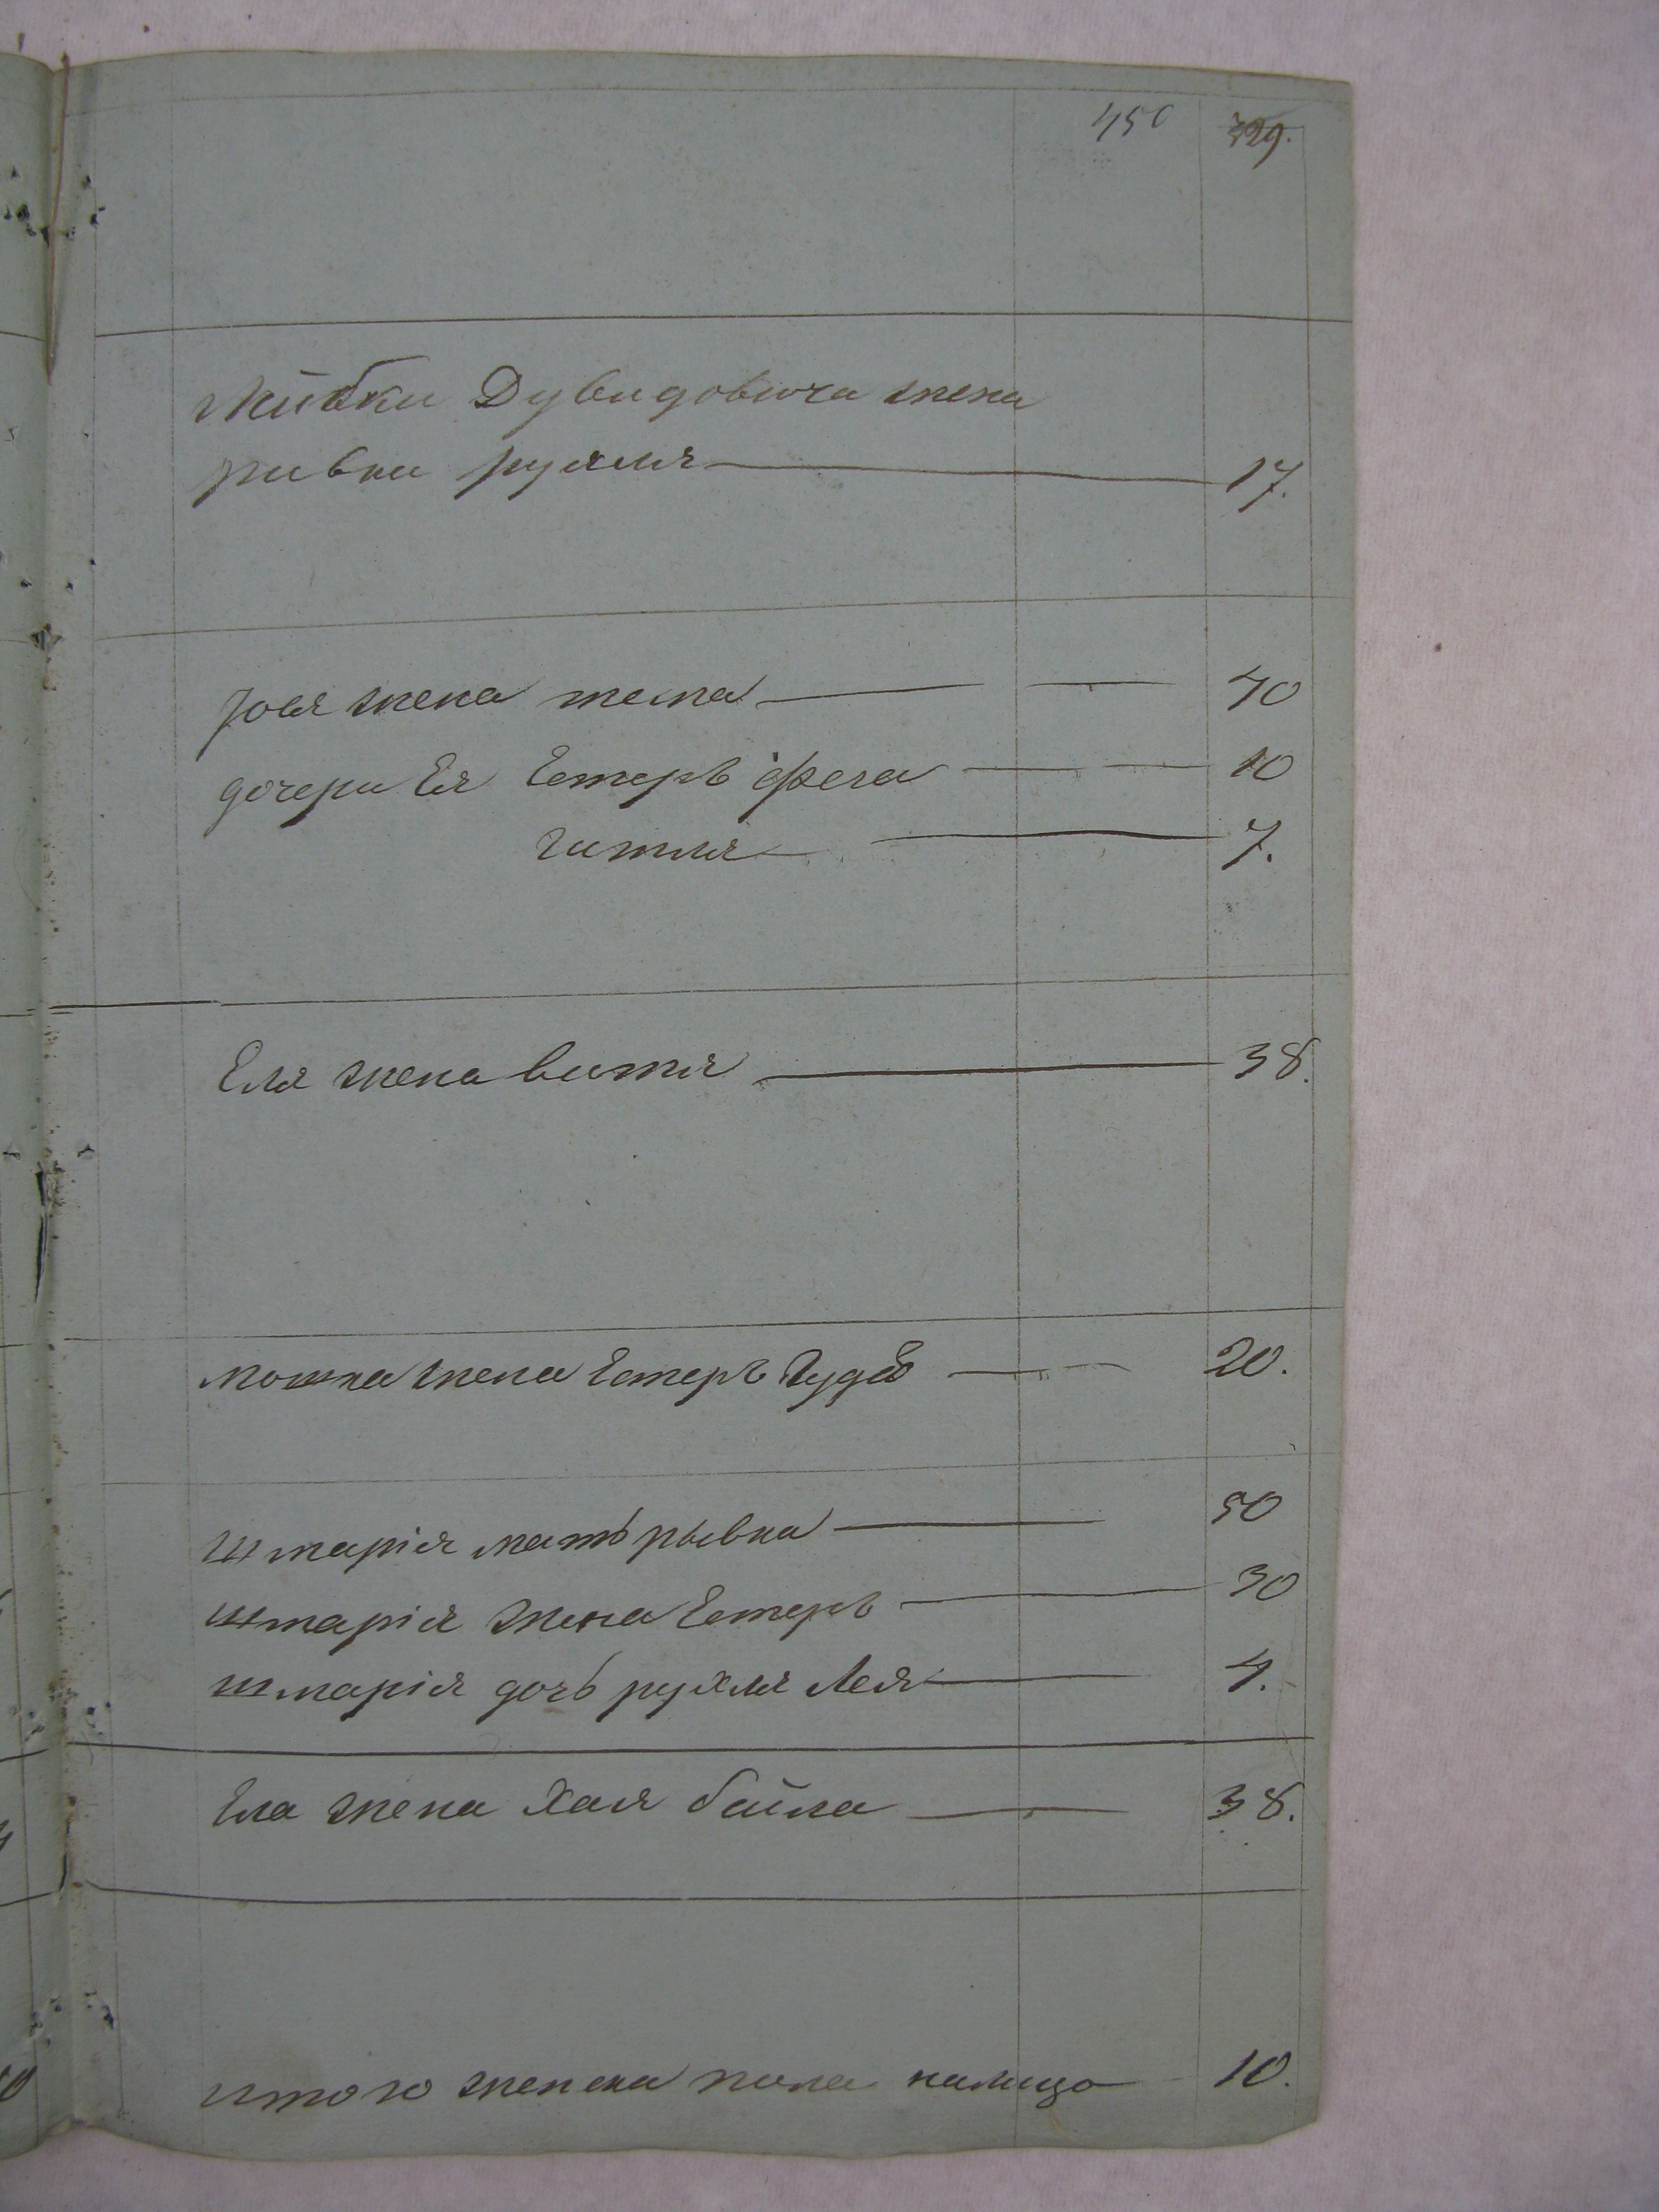 450 329.
Лейбки Дувидовича жена
ривка рухля 17.
жена 40
дочери Ея Естерь фега 10
гитля 7.
Еля жена витя 38.
мошка жена Естерь гудя 20.
шмарія мать рывка 50
шмарія жена Естерь 30
шмарія дочь рухля Лея 4.
Ела жена Хая байла 38.
итого женска пола налицо 10.